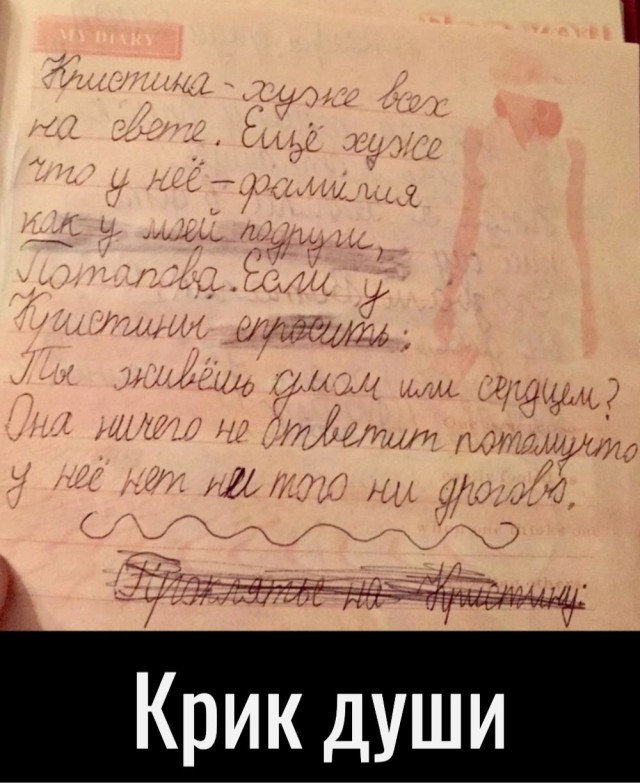 MY DIARY
Кристина - хуже всех
на свете. Ещё хуже
что у неё - фамилия
как у моей подруги,
Потапова. Если у
Кристины спросить:
Ты живёшь умом или сердцем?
Она ничего не ответит потомучто
у неё нет ни того ни дрогова.
Проклятье на Кристину:
Крик души